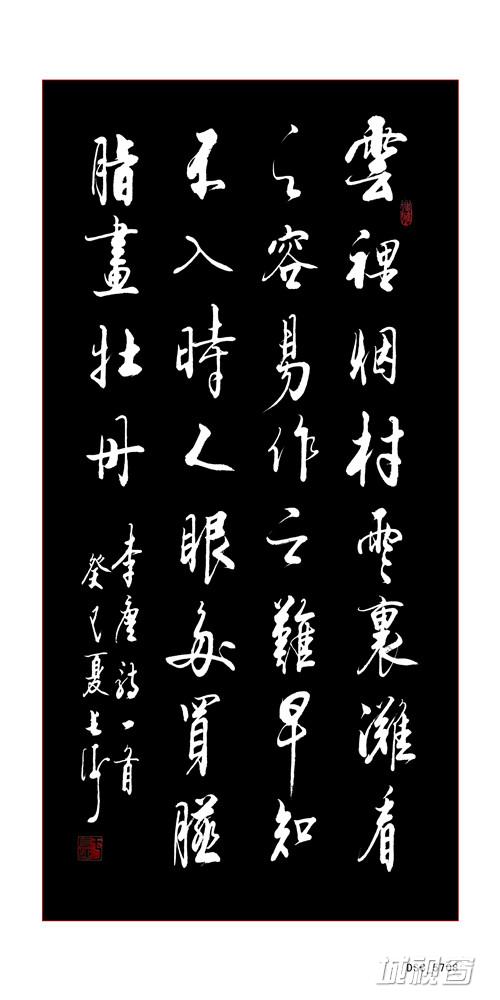 雲裡烟村雪裏灘看
之容易作之難早知
不入時人眼多買臙
脂畫牡丹
李唐詩一首
癸巳夏